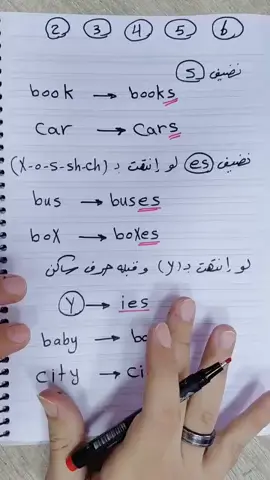 2 3 4 5 6
نضيف s
book → books
car → cars
نضيف es لو إنتهت د (x-o-s-sh-ch)
bus → buses
box → boxes
لو إنتهت د (y) وقبله حرف ساكن
y → ies
baby → ba
city → ci